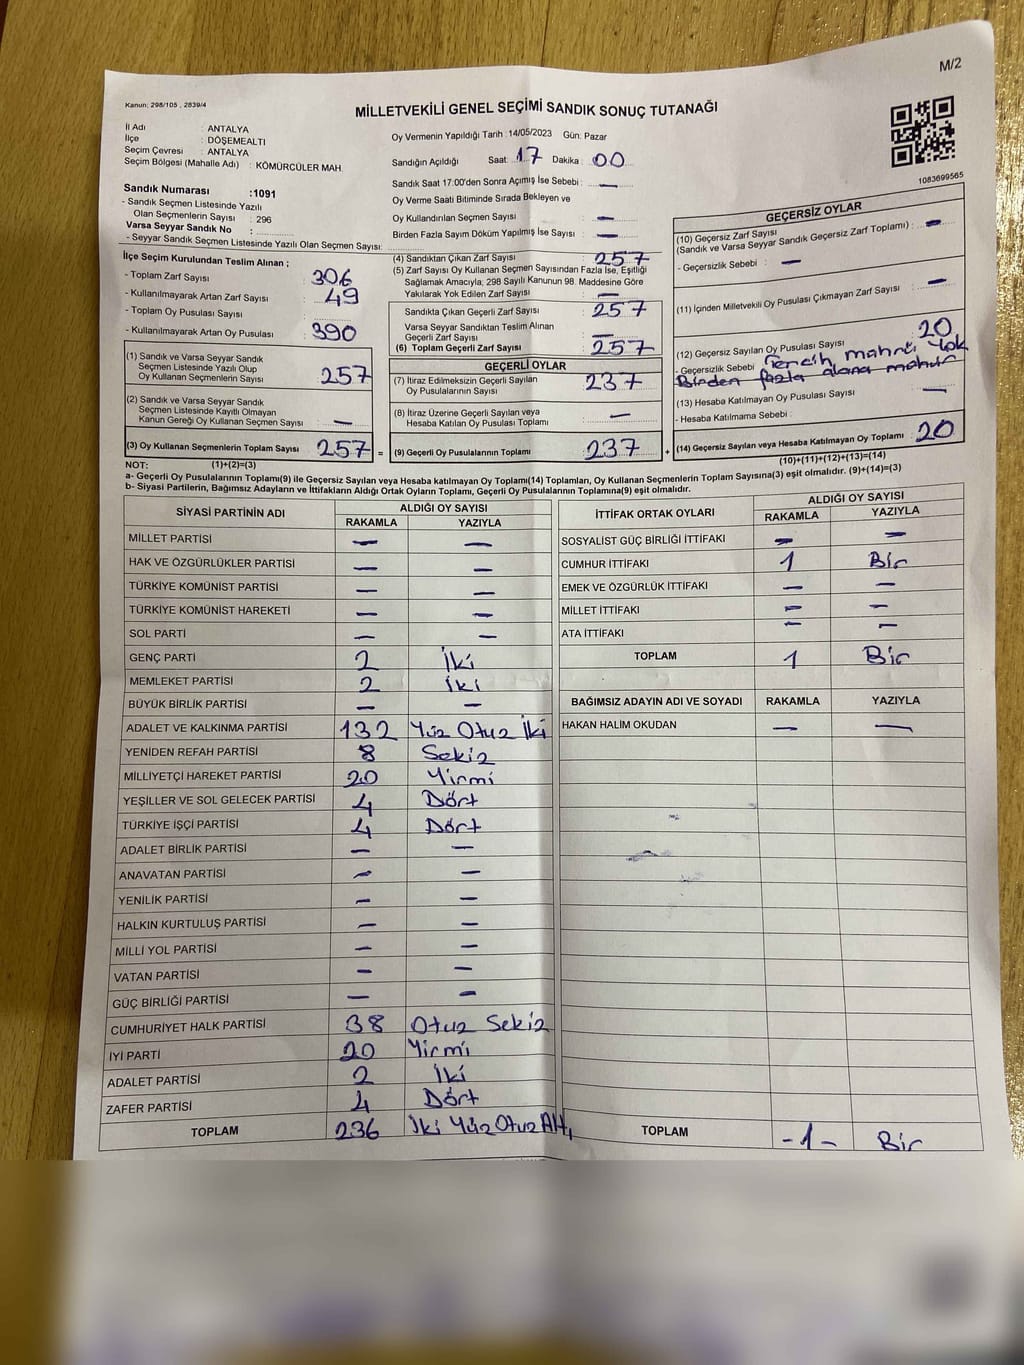 M/2
Kanun: 298/105 , 2839/4
MİLLETVEKİLİ GENEL SEÇİMİ SANDIK SONUÇ TUTANAĞI
İl Adı : ANTALYA
İlçe : DÖŞEMEALTI
Seçim Çevresi : ANTALYA
Seçim Bölgesi (Mahalle Adı) : KÖMÜRCÜLER MAH.
Sandık Numarası :1091
- Sandık Seçmen Listesinde Yazılı
Olan Seçmenlerin Sayısı : 296
Varsa Seyyar Sandık No :
- Seyyar Sandık Seçmen Listesinde Yazılı Olan Seçmen Sayısı:
Oy Vermenin Yapıldığı Tarih :14/05/2023 Gün: Pazar
Sandığın Açıldığı Saat: 17 Dakika: 00
Sandık Saat 17:00'den Sonra Açımış İse Sebebi : —
Oy Verme Saati Bitiminde Sırada Bekleyen ve
Oy Kullandırılan Seçmen Sayısı : —
Birden Fazla Sayım Döküm Yapılmış İse Sayısı : —
1083699565
İlçe Seçim Kurulundan Teslim Alınan ;
- Toplam Zarf Sayısı : 306
- Kullanılmayarak Artan Zarf Sayısı : 49
- Toplam Oy Pusulası Sayısı :
- Kullanılmayarak Artan Oy Pusulası : 390
(1) Sandık ve Varsa Seyyar Sandık
Seçmen Listesinde Yazılı Olup
Oy Kullanan Seçmenlerin Sayısı : 257
(2) Sandık ve Varsa Seyyar Sandık
Seçmen Listesinde Kayıtlı Olmayan
Kanun Gereği Oy Kullanan Seçmen Sayısı : —
(3) Oy Kullanan Seçmenlerin Toplam Sayısı : 257 =
(4) Sandıktan Çıkan Zarf Sayısı : 257
(5) Zarf Sayısı Oy Kullanan Seçmen Sayısından Fazla İse, Eşitliği
Sağlamak Amacıyla, 298 Sayılı Kanunun 98. Maddesine Göre
Yakılarak Yok Edilen Zarf Sayısı : —
Sandıkta Çıkan Geçerli Zarf Sayısı : 257
Varsa Seyyar Sandıktan Teslim Alınan
Geçerli Zarf Sayısı : —
(6) Toplam Geçerli Zarf Sayısı : 257
GEÇERLİ OYLAR
(7) İtiraz Edilmeksizin Geçerli Sayılan
Oy Pusulalarının Sayısı : 237
(8) İtiraz Üzerine Geçerli Sayılan veya
Hesaba Katılan Oy Pusulası Toplamı : —
(9) Geçerli Oy Pusulalarının Toplamı : 237 +
GEÇERSİZ OYLAR
(10) Geçersiz Zarf Sayısı
(Sandık ve Varsa Seyyar Sandık Geçersiz Zarf Toplamı) : —
- Geçersizlik Sebebi : —
(11) İçinden Milletvekili Oy Pusulası Çıkmayan Zarf Sayısı : —
(12) Geçersiz Sayılan Oy Pusulası Sayısı : 20
- Geçersizlik Sebebi : Yok
Birden fazla alana
(13) Hesaba Katılmayan Oy Pusulası Sayısı : —
- Hesaba Katılmama Sebebi :
(14) Geçersiz Sayılan veya Hesaba Katılmayan Oy Toplamı : 20
NOT: (1)+(2)=(3)
(10)+(11)+(12)+(13)=(14)
a- Geçerli Oy Pusulalarının Toplamı(9) ile Geçersiz Sayılan veya Hesaba katılmayan Oy Toplamı(14) Toplamları, Oy Kullanan Seçmenlerin Toplam Sayısına(3) eşit olmalıdır. (9)+(14)=(3)
b- Siyasi Partilerin, Bağımsız Adayların ve İttifakların Aldığı Ortak Oyların Toplamı, Geçerli Oy Pusulalarının Toplamına(9) eşit olmalıdır.
SİYASİ PARTİNİN ADI ALDIĞI OY SAYISI
RAKAMLA YAZIYLA
MİLLET PARTİSİ — —
HAK VE ÖZGÜRLÜKLER PARTİSİ — —
TÜRKİYE KOMÜNİST PARTİSİ — —
TÜRKİYE KOMÜNİST HAREKETİ — —
SOL PARTİ — —
GENÇ PARTİ 2 İki
MEMLEKET PARTİSİ 2 İki
BÜYÜK BİRLİK PARTİSİ — —
ADALET VE KALKINMA PARTİSİ 132 Yüz Otuz İki
YENİDEN REFAH PARTİSİ 8 Sekiz
MİLLİYETÇİ HAREKET PARTİSİ 20 Yirmi
YEŞİLLER VE SOL GELECEK PARTİSİ 4 Dört
TÜRKİYE İŞÇİ PARTİSİ 4 Dört
ADALET BİRLİK PARTİSİ — —
ANAVATAN PARTİSİ — —
YENİLİK PARTİSİ — —
HALKIN KURTULUŞ PARTİSİ — —
MİLLİ YOL PARTİSİ — —
VATAN PARTİSİ — —
GÜÇ BİRLİĞİ PARTİSİ — —
CUMHURİYET HALK PARTİSİ 38 Otuz Sekiz
İYİ PARTİ 20 Yirmi
ADALET PARTİSİ 2 İki
ZAFER PARTİSİ 4 Dört
TOPLAM 236 İki Yüz Otuz Altı
İTTİFAK ORTAK OYLARI ALDIĞI OY SAYISI
RAKAMLA YAZIYLA
SOSYALİST GÜÇ BİRLİĞİ İTTİFAKI — —
CUMHUR İTTİFAKI 1 Bir
EMEK VE ÖZGÜRLÜK İTTİFAKI — —
MİLLET İTTİFAKI — —
ATA İTTİFAKI — —
TOPLAM 1 Bir
BAĞIMSIZ ADAYIN ADI VE SOYADI RAKAMLA YAZIYLA
HAKAN HALİM OKUDAN — —
TOPLAM -1- Bir